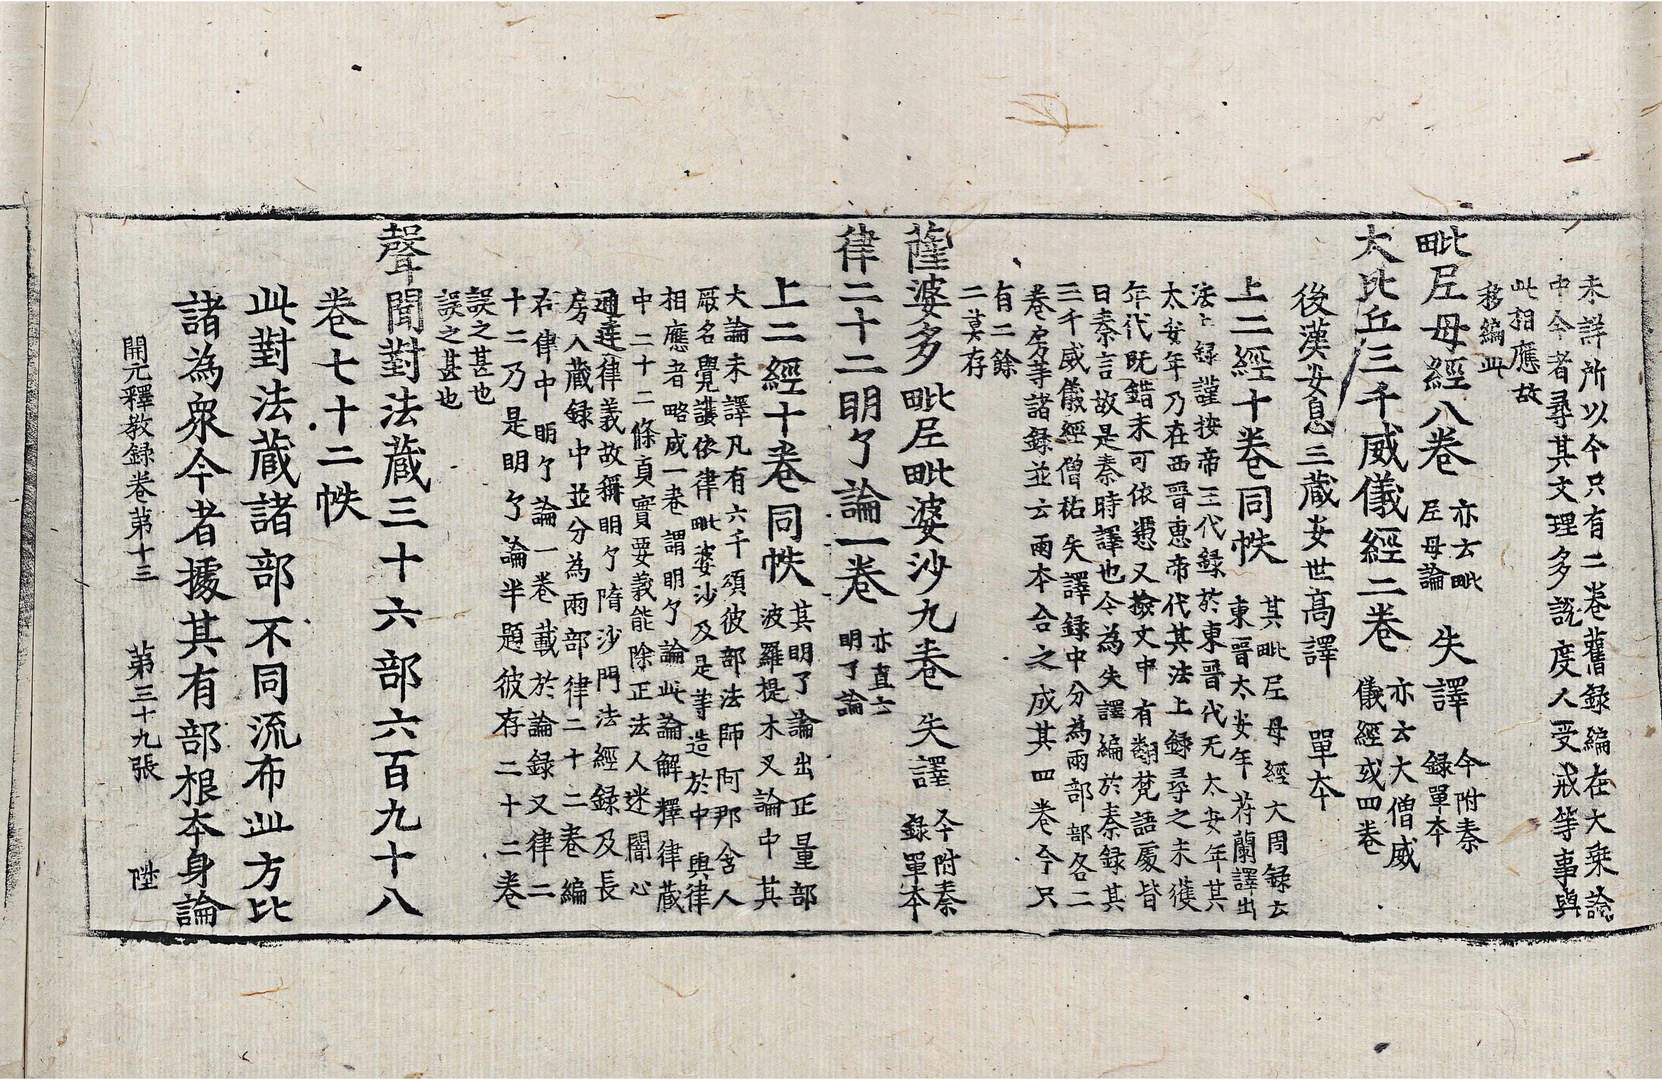 未詳所以今只有二卷舊録編在大乗論
中今者尋其文理多説度人受戒等事與
此相應故
移編此
毗尼母經八卷 亦云毗 失譯 今附秦
尼母論 録單本
大比丘三千威儀經二卷 亦云大僧威
儀經或四卷
後漢安息三藏安世高譯 單本
上二經十卷同帙 其毗尼母經大周録云
東晉太安年苻蘭譯出
法上録謹按帝王代録於東晉代无太安年其
太安年乃在西晉惠帝代其法上録尋之未獲
年代既錯未可依憑又撿文中有翻梵語處皆
曰秦言故是秦時譯也今為失譯編於秦録其
三千威儀經僧祐失譯録中分為兩部部各二
卷房等諸録並云兩本合之成其四卷今只
有二餘
二莫存
薩婆多毗尼毗婆沙九卷 失譯 今附秦
録單本
律二十二明了論一卷 亦直云
明了論
上二經十卷同帙 其明了論出正量部
波羅提木叉論中其
大論未譯凡有六千頌彼部法師阿那含人
厥名覺護依律毗婆沙及是等造於中與律
相應者略成一卷謂明了論此論解釋律藏
中二十二條頁實要義能除正法人迷闇心
通達律義故稱明了隋沙門法經録及長
房入藏録中並分為兩部律二十二卷編
在律中明了論一卷載於論録又律二
十二乃是明了論半題彼存二十二卷
誤之甚也
誤之甚也
聲聞對法藏三十六部六百九十八
卷七十二帙
此對法藏諸部不同流布此方比
諸為衆今者據其有部根本身論
開元釋教録卷第十三 第三十九張 陞